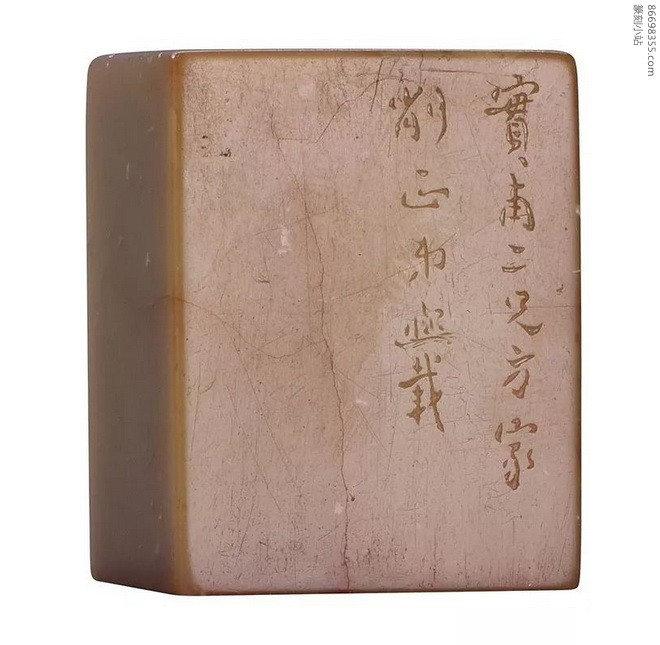 實甫二兄方家
削正弟熙載
篆刻小站
86698355.com